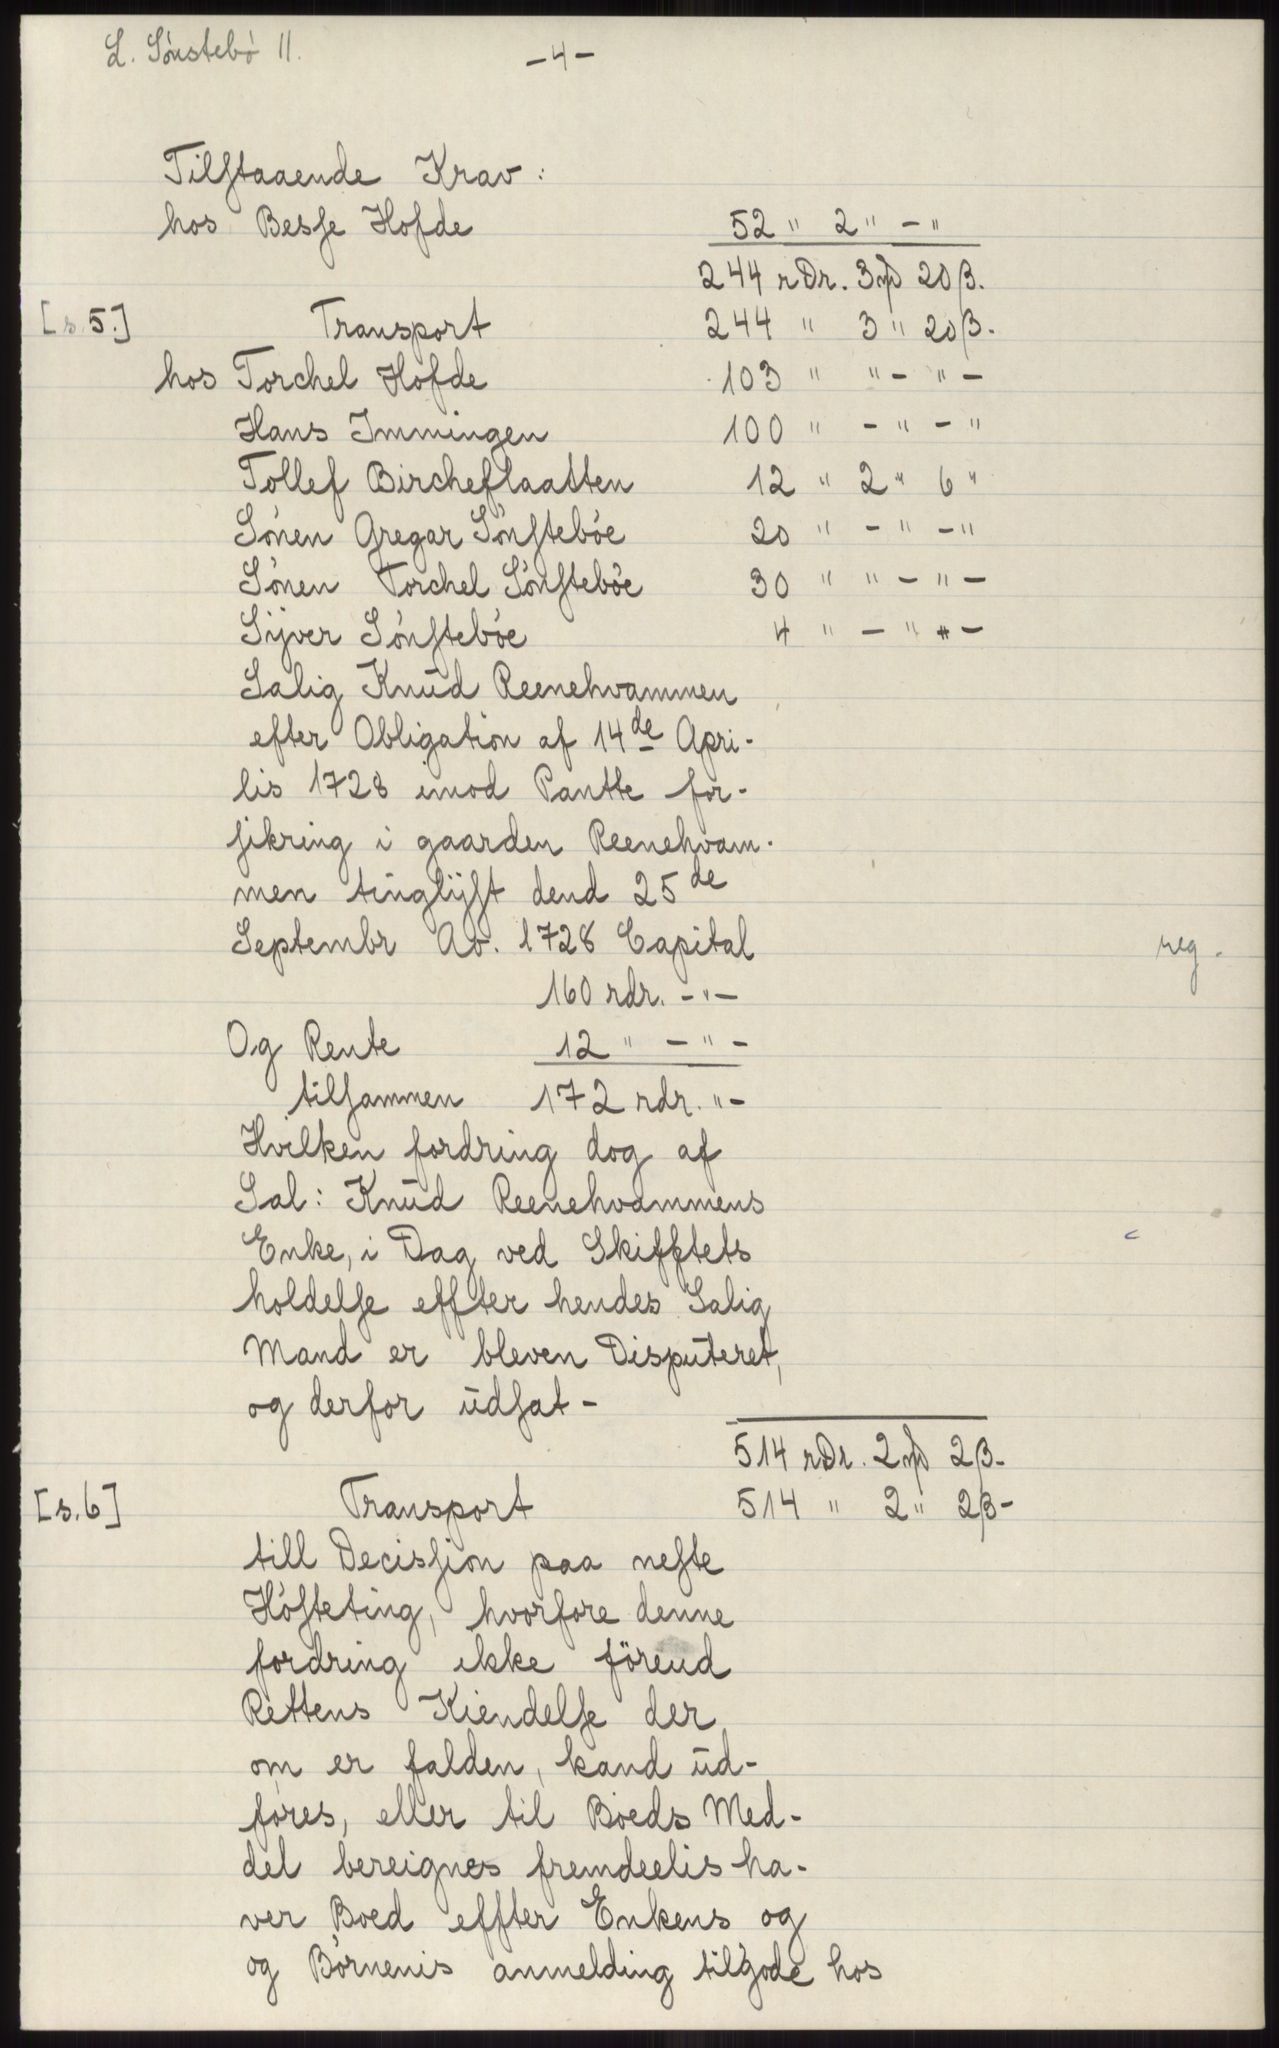 L. Sønstebø 11.
- 4 -
Tilstaaende Krav:
hos Besse Hofde 52 " 2 " - "
244 rDr. 3 ₥ 20 β.
[s. 5.] Transport 244 " 3 " 20 β.
hos Torchel Hofde 103 " " - " -
Hans Immingen 100 " - " - "
Tollef Bircheflaatten 12 " 2 " 6 "
Sønen Gregar Sønstebøe 20 " - " - "
Sønen Torchel Sønstebøe 30 " " - " -
Sijver Sønstebøe 4 " - " " -
Salig Knud Reenehvammen
efter Obligation af 14de Apri-
lis 1728 imod Pantte for-
sikring i gaarden Reenehvam-
men tinglijst dend 25de
Septembr Ao. 1728 Capital
reg.
160 rdr. - " -
Og Rente 12 " - " -
tilsammen 172 rdr. " -
Hvilken fordring dog af
Sal: Knud Reenehvammens
Enke, i Dag ved Skifftets
holdelse effter hendes Salig
Mand er bleven Disputeret,
og derfor udsat -
514 rDr. 2 ₥ 2 β -
[s. 6] Transport 514 " 2 " 2 β -
till Decission paa neste
Høsteting, hvorfore denne
fordring ikke förend
Rettens Kiendelse der
om er falden, kand ud-
føres, eller til Boeds Med-
del bereignes fremdeelis ha-
ver Boed effter Enkens og
og Børnenis anmelding tilgode hos